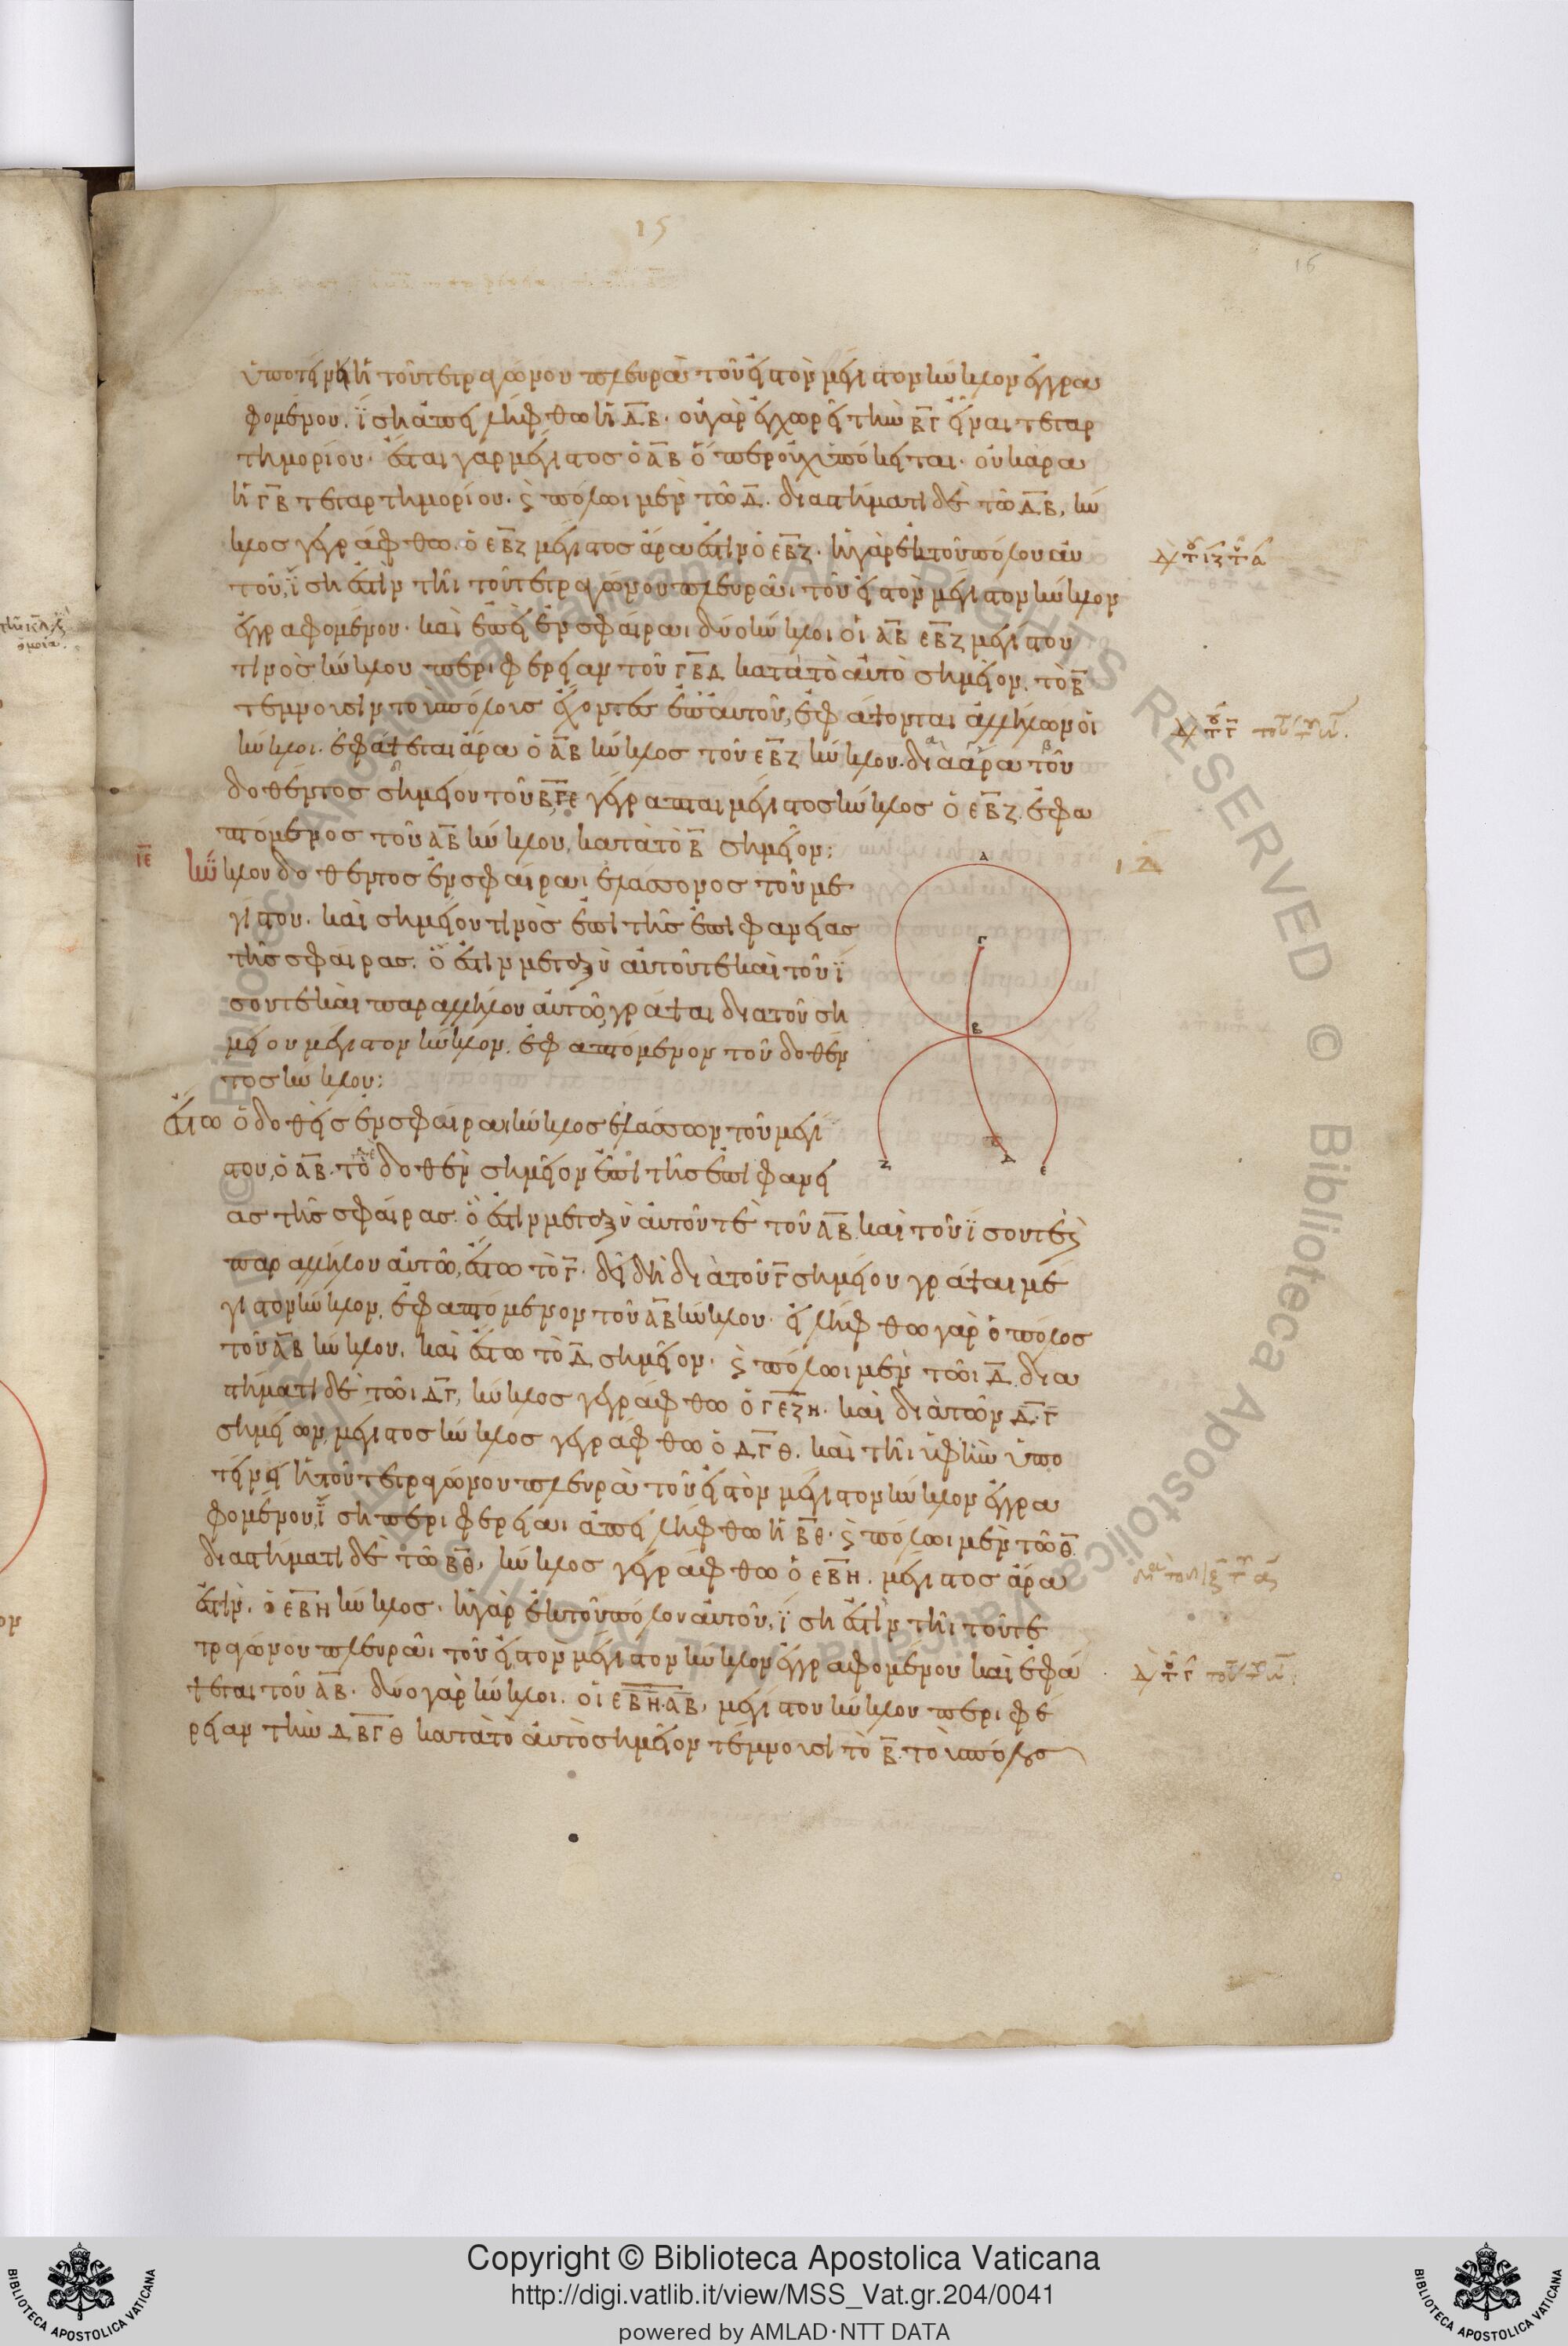 15
16
ὑποτείνει ἡ τοῦ τετραγώνου πλευρὰ τοῦ εἰς τὸν μέγιστον κύκλον ἐγγρα
φομένου, ἴση ἀπειλήφθω ἡ ΔΒ. οὐ γὰρ ἐγχωρεῖ τὴν ΒΓ εἶναι τεταρ
τημορίου. ἔσται γὰρ μέγιστος ὁ ΑΒ ὅπερ οὐχ ὑπόκειται. οὐκ ἄρα
ἡ ΓΒ τεταρτημορίου. καὶ πόλωι μὲν τῶ Δ. διαστήματι δὲ τῶ ΔΒ, κύ
κλος γεγράφθω. ὁ ΕΒΖ μέγιστος ἄρα ἐστὶν ὁ ΕΒΖ. ἡ γὰρ ἐκ τοῦ πόλου αὐ
τοῦ, ἴση ἐστὶν τῆι τοῦ τετραγώνου πλευρᾶι τοῦ εἰς τὸν μέγιστον κύκλον
ἐγγραφομένου. καὶ ἐπεὶ ἐν σφαίραι δύο κύκλοι οἱ ΑΒ ΕΒΖ μεγίστου
τινὸς κύκλου περιφέρειαν τοῦ ΓΒΔ κατὰ τὸ αὐτὸ σημεῖον, τὸ Β
τέμνουσιν τοὺς πόλους ἔχοντες ἐπ' αὐτοῦ, ἐφάψονται ἀλλήλων οἱ
κύκλοι. ἐφάψεται ἄρα ὁ ΑΒ κύκλος τοῦ ΕΒΖ κύκλου. διὰ ἄρα τοῦ
δοθέντος σημείου τοῦ ΒΓΕ γέγραπται μέγιστος κύκλος ὁ ΕΒΖ. ἐφα
πτόμενος τοῦ ΑΒ κύκλου, κατὰ τὸ Β σημεῖον:
ΙΕ
Κύκλου δοθέντος ἐν σφαίραι ἐλάσσονος τοῦ με
γίστου. καὶ σημείου τινὸς ἐπὶ τῆς ἐπιφανείας
τῆς σφαίρας. ὅ ἐστιν μεταξὺ αὐτοῦ τε καὶ τοῦ ἴ
σου τε καὶ παραλλήλου αὐτῶ, γράψαι διὰ τοῦ ση
μείου μέγιστον κύκλον. ἐφαπτόμενον τοῦ δοθέν
τος κύκλου:
Ἔστω ὁ δοθεὶς ἐν σφαίραι κύκλος ἐλάσσων τοῦ μεγί
στου, ὁ ΑΒ. τὸ δοθὲν σημεῖον ἐπὶ τῆς ἐπιφανεί
ας τῆς σφαίρας. ὅ ἐστιν μεταξὺ αὐτοῦ τε τοῦ ΑΒ. καὶ τοῦ ἴσου τε καὶ
παραλλήλου αὐτῶ, ἔστω τὸ Γ. δεῖ δὴ διὰ τοῦ Γ σημείου γράψαι μέ
γιστον κύκλον, ἐφαπτόμενον τοῦ ΑΒ κύκλου. εἰλήφθω γὰρ ὁ πόλος
τοῦ ΑΒ κύκλου. καὶ ἔστω τὸ Δ σημεῖον. καὶ πόλωι μὲν τῶι Δ. δια
στήματι δὲ τῶι ΔΓ, κύκλος γεγράφθω ὁ ΓΕΖΗ. καὶ διὰ τῶν Δ. Γ
σημείων, μέγιστος κύκλος γεγράφθω ὁ ΔΓΘ. καὶ τῆι ὑφ' ἣν ὑπο
τείνει ἡ τοῦ τετραγώνου πλευρὰ τοῦ εἰς τὸν μέγιστον κύκλον ἐγγρα
φομένου, ἴση περιφερείαι ἀπειλήφθω ἡ ΒΘ. καὶ πόλωι μὲν τῶ Θ.
διαστήματι δὲ τῶ ΒΘ, κύκλος γεγράφθω ὁ ΕΒΗ. μέγιστος ἄρα
ἐστὶν. ὁ ΕΒΗ κύκλος. ἡ γὰρ ἐκ τοῦ πόλου αὐτοῦ, ἴση ἐστὶν τῆι τοῦ τε
τραγώνου πλευρᾶι τοῦ εἰς τὸν μέγιστον κύκλον ἐγγραφομένου καὶ ἐφά
ψεται τοῦ ΑΒ. δύο γὰρ κύκλοι. οἱ ΕΒΗ. ΑΒ, μεγίστου κύκλου περιφέ
ρειαν τὴν ΔΒΓΘ κατὰ τὸ αὐτὸ σημεῖον τέμνουσι τὸ Β. τοὺς πόλους
Α
Γ
Β
Ζ
Δ
Ε
Copyright © Biblioteca Apostolica Vaticana
http://digi.vatlib.it/view/MSS_Vat.gr.204/0041
powered by AMLAD·NTT DATA
BIBLIOTECA APOSTOLICA VATICANA
BIBLIOTECA APOSTOLICA VATICANA